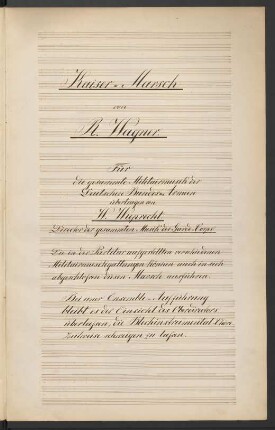 Kaiser-Marsch
von
R. Wagner.
Für
die gesammte Militairmusik der
Deutschen Bundes-Armee
übertragen von
W. Wieprecht
Director der gesammten Musik des Garde-Corps
Die in der Partitur aufgestellten verschiedenen
Militairmusikgattungen können auch in sich
abgeschlossen diesen Marsch ausführen.
Bei einer Ensemble-Aufführung
bleibt es der Einsicht des
überlassen, die Blechinstrumental
schweigen zu lassen.